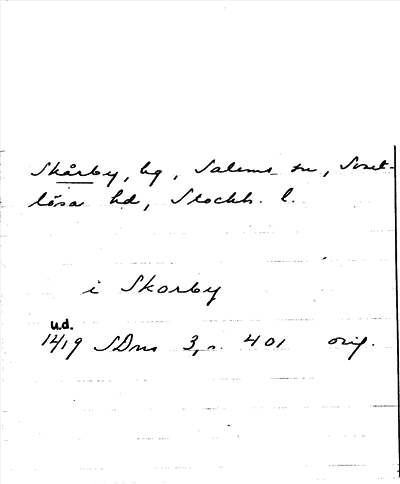 Skårby, bg, Salems sn, Svet-
lösa hd, Stockh. l.
i Skorby
u.d.
1419 SDns 3, s. 401 orig.